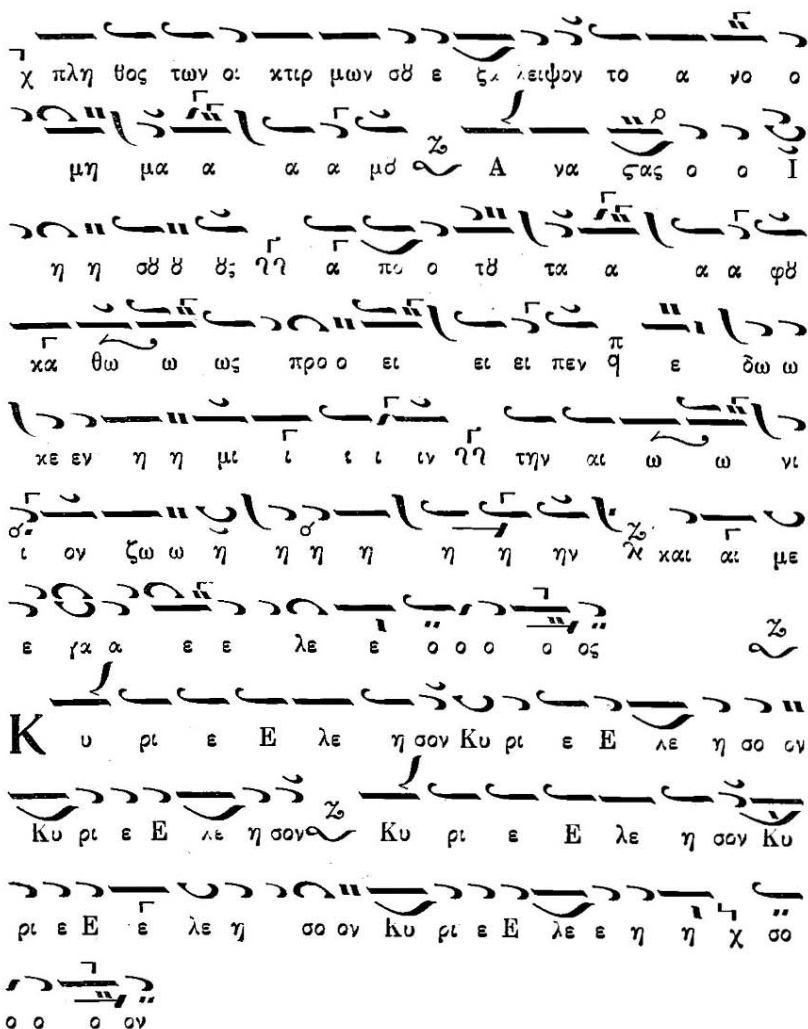 χ πλη θος των οι κτιρ μων σȣ ε ξα λειψον το α νο ο
μη μα α α α μȣ Α να ςας ο ο Ι
η η σȣ ȣ ȣς α πο ο τȣ τα α α α φȣ
κα θω ω ως προ ο ει ει ει πεν π q ε δω ω
κε εν η η μι ι ι ι ιν την αι ω ω νι
ι ον ζω ω η η η η η η ην και αι με
ε γα α ε ε λε ε ο ο ο ο ος
Κ υ ρι ε Ε λε η σον Κυ ρι ε Ε λε η σο ον
Κυ ρι ε Ε λε η σον Κυ ρι ε Ε λε η σον Κυ
ρι ε Ε ε λε η σο ον Κυ ρι ε Ε λε ε η η χ σο
ο ο ο ον